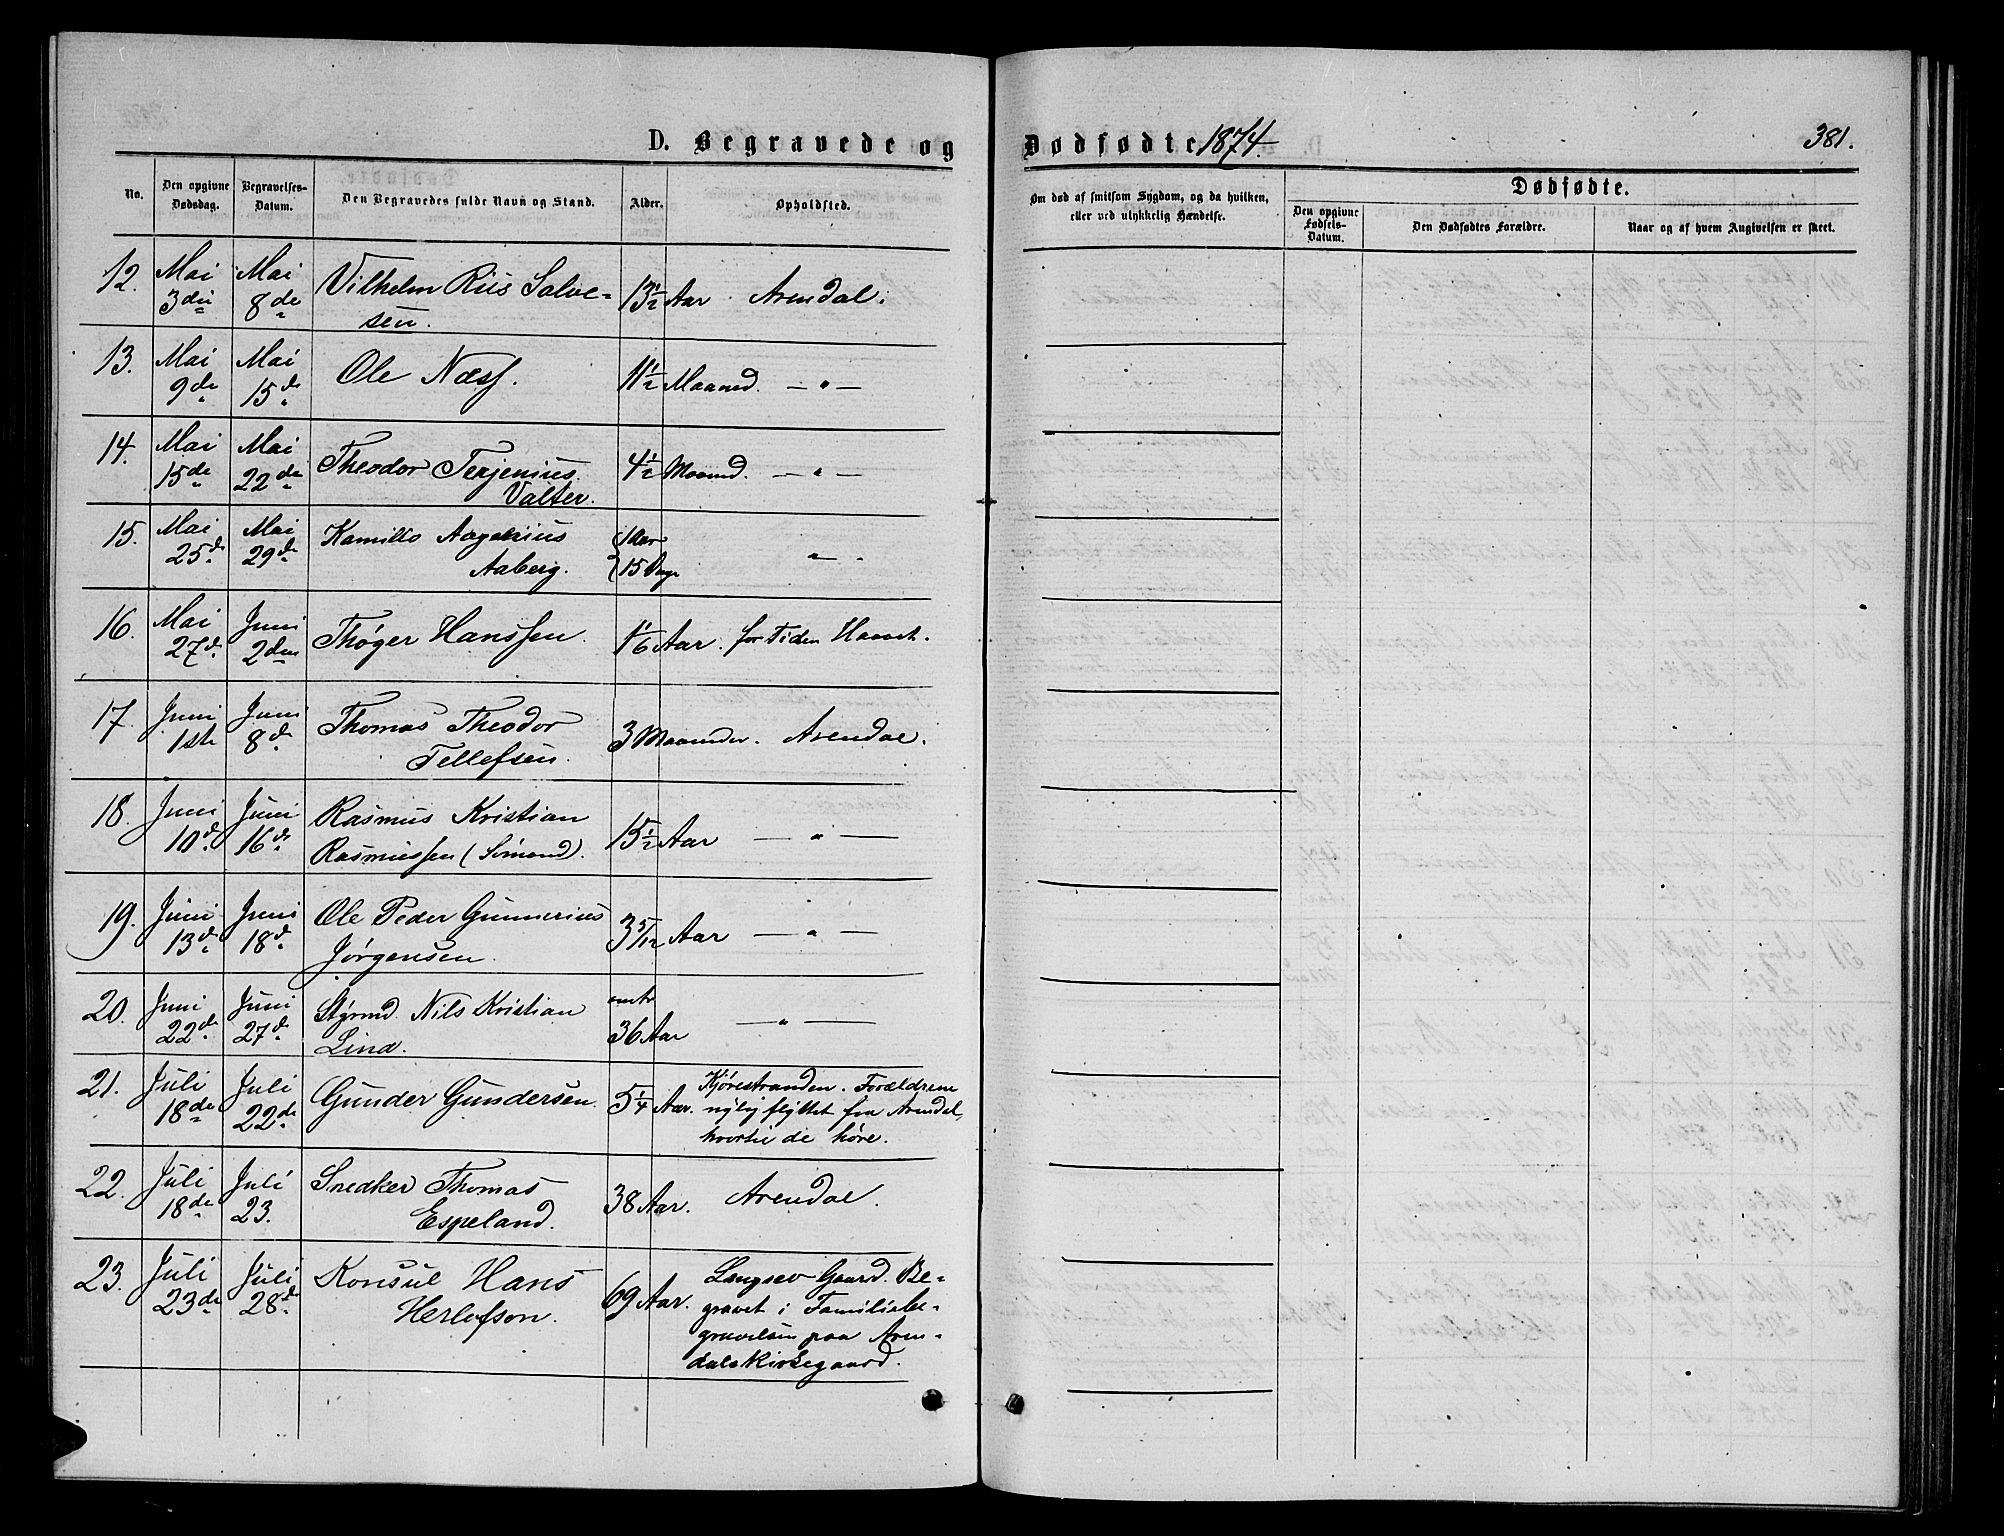 D. Begravede og Dødfødte 1874. 381.
No. Den opgivne Dødsdag. Begravelses-Datum. Den Begravedes fulde Navn og Stand. Alder. Opholdsted. Om død af smitsom Sygdom, og da hvilken, eller ved ulykkelig Hændelse. Dødfødte.
Den opgivne Fødsels-Datum. Den Dødfødtes Forældre. Naar og af hvem Angivelsen er skeet.
12. Mai Mai Vilhelm Riis Salve- 13½ Aar. Arendal.
3die 8de sen.
13. Mai Mai Ole Næss. 11½ Maaned. — " —
9de 15de
14. Mai Mai Theodor Terjenius 4½ Maaned. — " —
15de 22de Valter.
15. Mai Mai Kamillo Aagenius 1 Aar " —
25de 29de Aaberg. 15 Dage
16. Mai Juni Thøger Hanssen. 1 1/6 Aar. for Tiden Havnet.
27de 2den
17. Juni Juni Thomas Theodor 3 Maaneder. Arendal.
1ste 8de Tellefsen.
18. Juni Juni Rasmus Kristian 15½ Aar — " —
10de 16de Rasmussen (Sømand).
19. Juni Juni Ole Peder Gunnerius 3 5/12 Aar — " —
13de 18de Jørgensen.
20. Juni Juni Styrmd. Nils Kristian omtr — " —
22de 27de Lind. 36 Aar
21. Juli Juli Gunder Gundersen. 5¼ Aar. Kjørestranden. Forældrene
18de 22de nylig flyttet fra Arendal,
hvortil de høre.
22. Juli Juli Snedker Thomas 38 Aar. Arendal.
18de 23. Espeland.
23. Juli Juli Konsul Hans 69 Aar. Langsev Gaard. Be-
23de 28de Herlofson. gravet i Familiebe-
gravelsen paa Aren-
dals Kirkegaard.